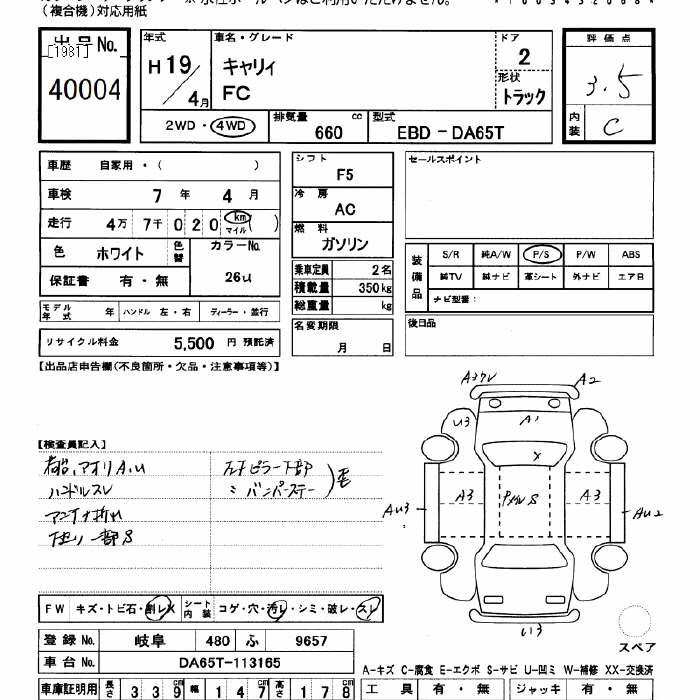 (複合機)対応用紙
出品No.
[1981]
40004
年式
H 19 / 4月
車名・グレード
キャリィ
FC
ドア
2
形状
トラック
2WD・4WD
排気量 660 cc
型式 EBD-DA65T
評価点
3.5
内装 C
車歴 自家用・( )
車検 7 年 4 月
走行 4万 7千 0 2 0 km マイル ( )
色 ホワイト 色替
カラーNo. 26U
保証書 有・無
モデル年式 年 ハンドル 左・右 ディーラー・並行
リサイクル料金 5,500 円 預託済
シフト
F5
冷房
AC
燃料
ガソリン
乗車定員 2 名
積載量 350 kg
総重量 kg
名変期限
月 日
セールスポイント
装備品
S/R 純A/W P/S P/W ABS
純TV 純ナビ 革シート 外ナビ エアB
ナビ型番:
後日品
【出品店申告欄(不良箇所・欠品・注意事項等)】
【検査員記入】
アオリA.U
ハンドルスレ
アンテナ折れ
下廻り一部S
ピラー下部
バンパーステー
A2
U3
A1
X
A3
A3
AU3
AU2
U3
スペア
FW キズ・トビ石・割レX
シート内装 コゲ・穴・汚レ・シミ・破レ・スレ
登録No. 岐阜 480 ふ 9657
車台No. DA65T-113165
車庫証明用 長さ 339 cm 幅 147 cm 高さ 178 cm
A-キズ C-腐食 E-エクボ S-サビ U-凹ミ W-補修 XX-交換済
工具 有・無 ジャッキ 有・無